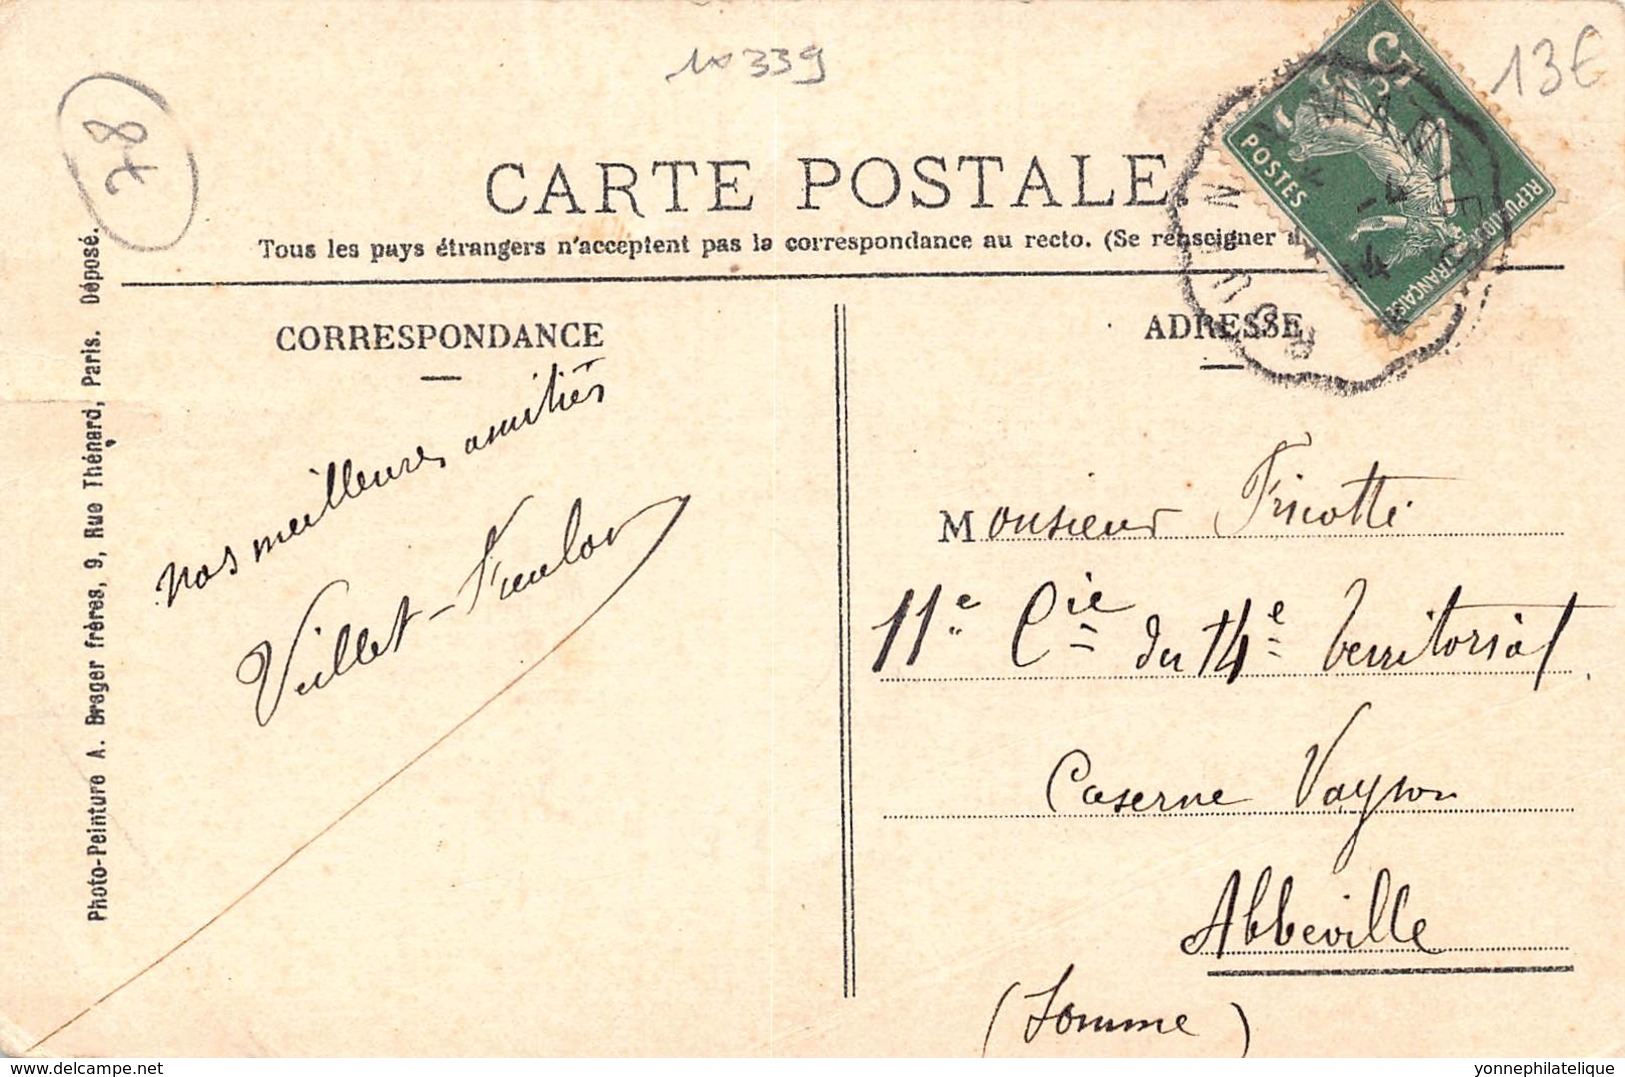 10339
13€
78
CARTE POSTALE.
Tous les pays étrangers n'acceptent pas la correspondance au recto. (Se renseigner
5c
POSTES
REPUBLIQUE FRANÇAISE
-4
14
CORRESPONDANCE
ADRESSE
nos meilleures amitiés
Monsieur Fricotte
11e Cie du 14e Territorial
Caserne Vayson
Abbeville
(Somme)
Photo-Peinture A. Breger frères, 9, Rue Thénard, Paris. Déposé.
www.delcampe.net
yonnephilatelique